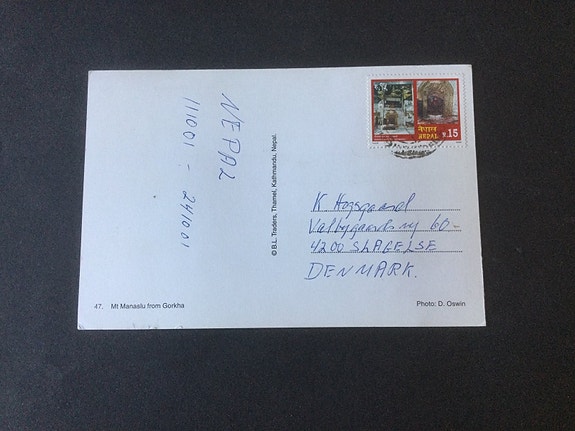 NEPAL
111001 - 241001
© B.L. Traders, Thamel, Kathmandu, Nepal.
नेपाल
NEPAL
रु.15
K Hogsgaard
Valbygaardsvej 60-
4200 SLAGELSE
DENMARK.
47. Mt Manaslu from Gorkha
Photo: D. Oswin